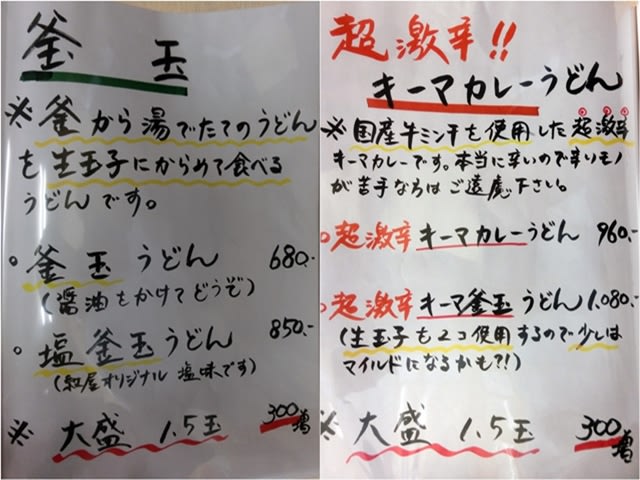 釜 玉
※釜から湯でたてのうどん
を生玉子にからめて食べる
うどんです。
○釜玉うどん 680.-
(醤油をかけてどうぞ)
○塩釜玉うどん 850.-
(紅屋オリジナル 塩味です)
※大盛 1.5玉 300増
超激辛!!
キーマカレーうどん
※国産牛ミンチを使用した超激辛
キーマカレーです。本当に辛いので辛いモノ
が苦手な方はご遠慮下さい。
○超激辛キーマカレーうどん 960.-
○超激辛キーマ釜玉うどん 1.080.-
(生玉子を2コ使用するので少しは
マイルドになるかも?!)
※大盛 1.5玉 300増